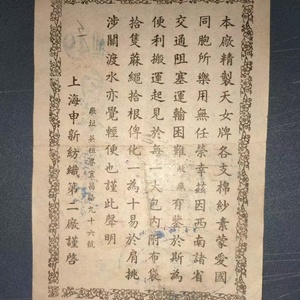 本廠精製天女牌各支棉紗素蒙愛國
同胞所樂用無任榮幸茲因西南諸省
交通阻塞運輸困難敝廠有鑒於斯為
便利搬運起見於每一大包內附布袋
拾隻蔴繩拾根俾化一為十易於肩挑
涉關渡水亦覺輕便也謹此聲明
廠址英租界宜昌路九十六號
上海申新紡織第二廠謹啓